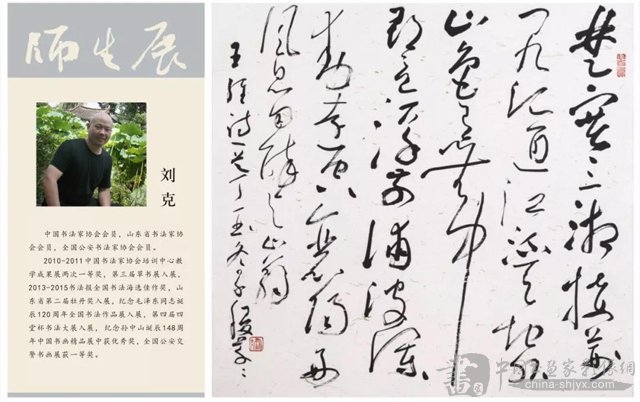 师生展
刘克
中国书法家协会会员，山东省书法家协
会会员，全国公安书法家协会会员。
2010-2011中国书法家协会培训中心教
学成果展两次一等奖，第三届草书展入展，
2013-2015书法报全国书法海选佳作奖，山
东省第二届牡丹奖入展，纪念毛泽东同志诞
辰120周年全国书法作品展入展，第四届四
堂杯书法大展入展，纪念孙中山诞辰148周
年中国书画精品展中获优秀奖，全国公安交
警书画展获一等奖。
楚塞三湘接荆
门九派通江流天地外
山色有无中
郡邑浮前浦波澜
动远空襄阳好
风日留醉与山翁
王维诗一首丁
china-shjyx.com